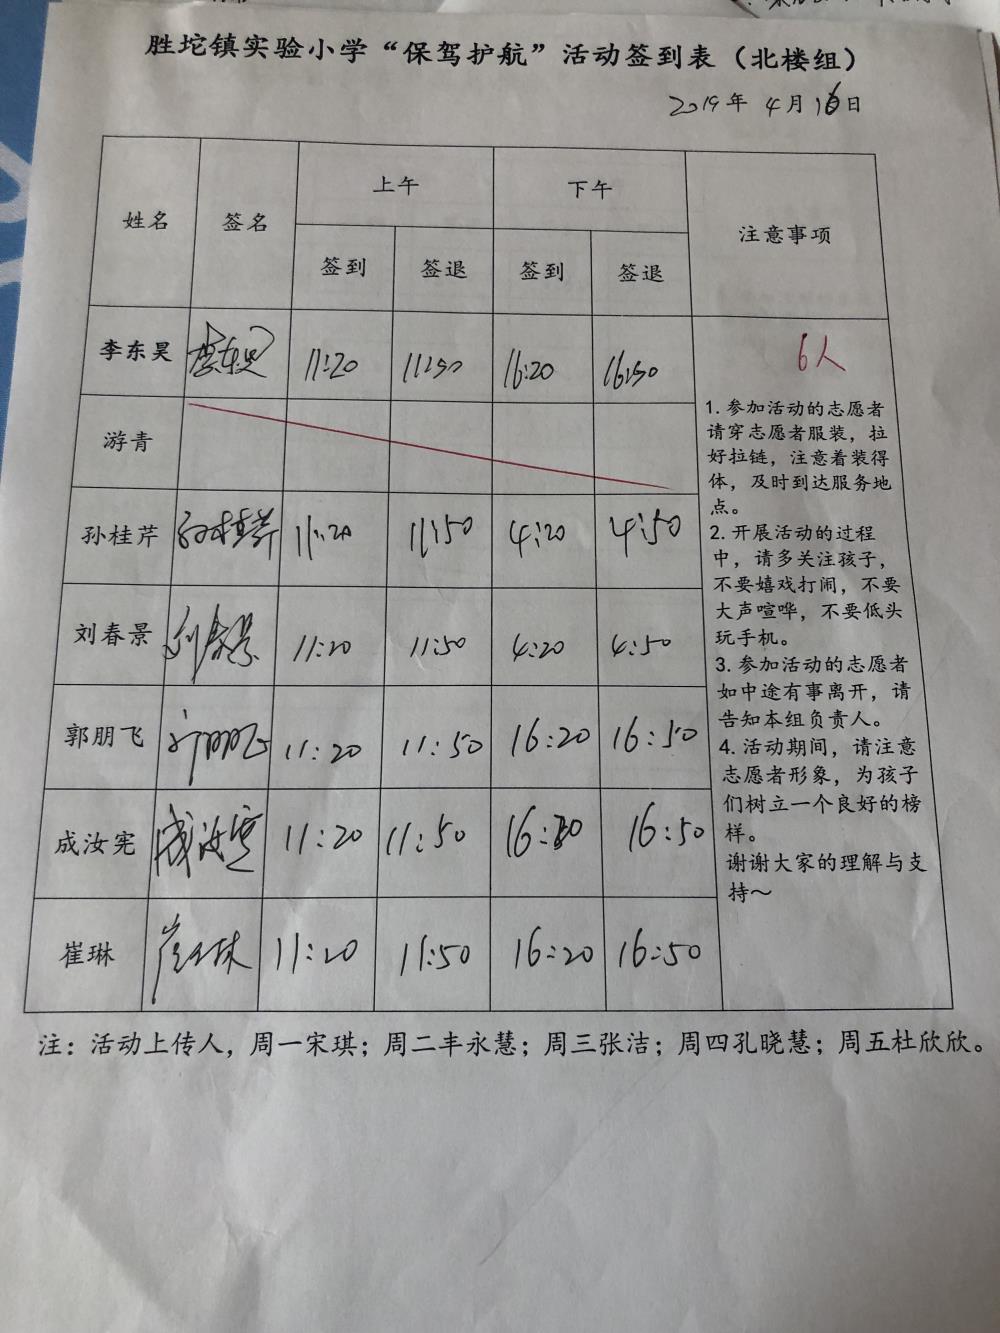 胜坨镇实验小学“保驾护航”活动签到表（北楼组）
2019年 4月 16日
姓名 签名 上午 下午 注意事项
签到 签退 签到 签退
李东昊 李东昊 11:20 11:50 16:20 16:50
游青
孙桂芹 孙桂芹 11:20 11:50 4:20 4:50
刘春景 刘春景 11:20 11:50 4:20 4:50
郭朋飞 郭朋飞 11:20 11:50 16:20 16:50
成汝宪 成汝宪 11:20 11:50 16:20 16:50
崔琳 崔琳 11:20 11:50 16:20 16:50
6人
1. 参加活动的志愿者
请穿志愿者服装，拉
好拉链，注意着装得
体，及时到达服务地
点。
2. 开展活动的过程
中，请多关注孩子，
不要嬉戏打闹，不要
大声喧哗，不要低头
玩手机。
3. 参加活动的志愿者
如中途有事离开，请
告知本组负责人。
4. 活动期间，请注意
志愿者形象，为孩子
们树立一个良好的榜
样。
谢谢大家的理解与支
持～
注：活动上传人，周一宋琪；周二丰永慧；周三张洁；周四孔晓慧；周五杜欣欣。